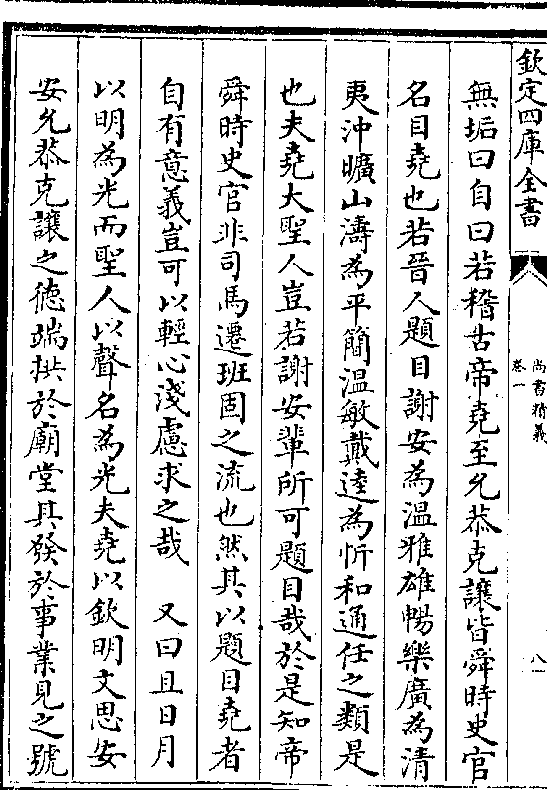 欽定四庫全書
尚書精義
卷一
八
無垢曰自曰若稽古帝堯至允恭克讓皆舜時史官
名目堯也若晉人題目謝安為溫雅雄暢樂廣為清
夷沖曠山濤為平簡溫敏戴逵為忻和通任之類是
也夫堯大聖人豈若謝安輩所可題目哉於是知帝
舜時史官非司馬遷班固之流也然其以題目堯者
自有意義豈可以輕心淺慮求之哉　又曰且日月
以明為光而聖人以聲名為光夫堯以欽明文思安
安允恭克讓之德端拱於廟堂其發於事業見之號